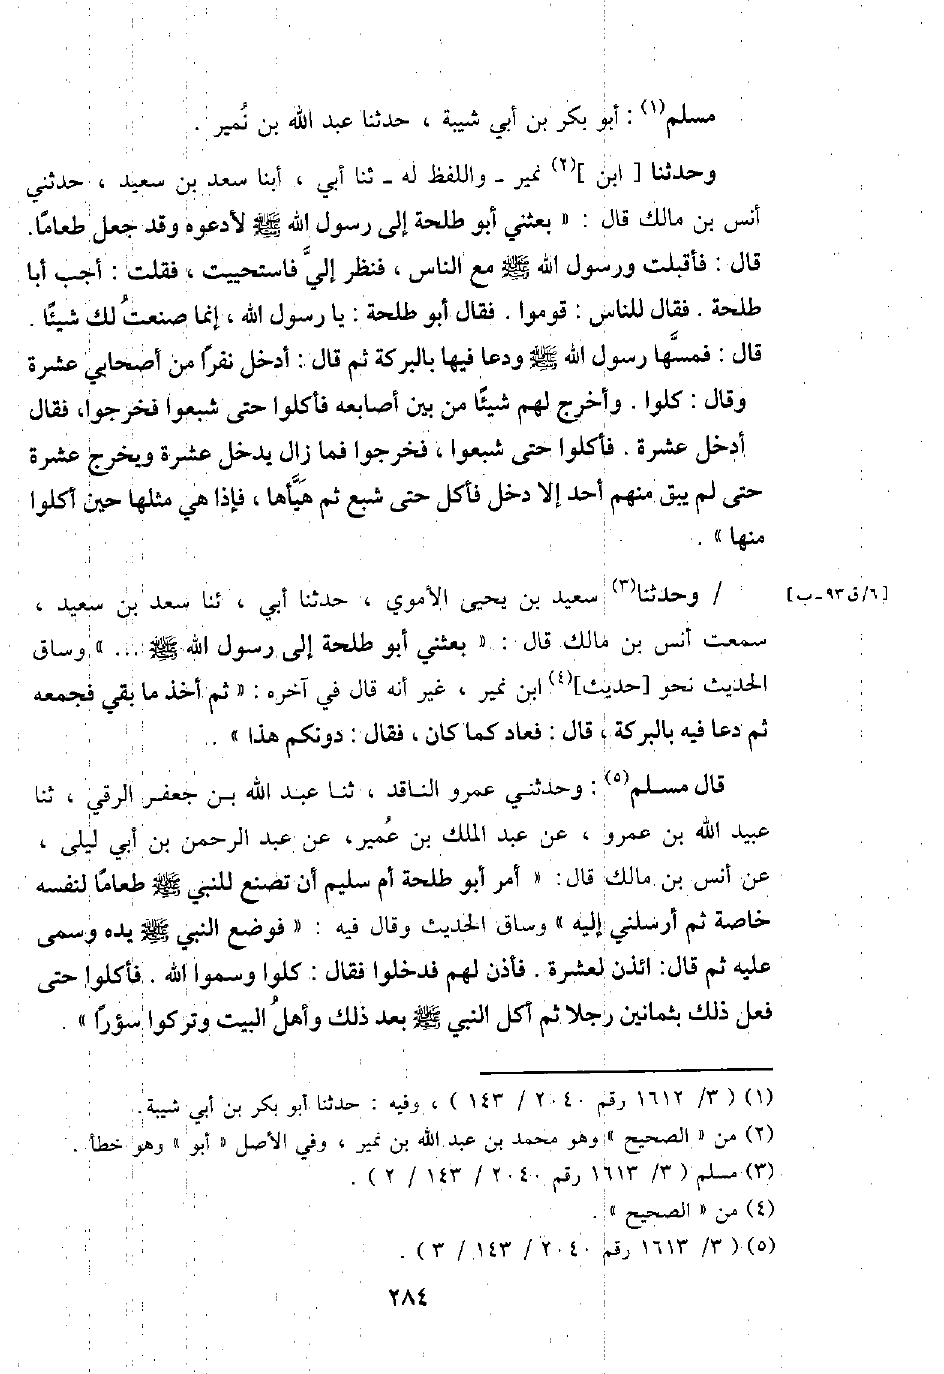 مسلم(١) : أبو بكر بن أبي شيبة ، حدثنا عبد الله بن نُمير .
وحدثنا [ ابن ](٢) نمير ـ واللفظ له ـ ثنا أبي ، أبنا سعد بن سعيد ، حدثني
أنس بن مالك قال : « بعثني أبو طلحة إلى رسول الله ﷺ لأدعوه وقد جعل طعامًا.
قال : فأقبلت ورسول الله ﷺ مع الناس ، فنظر إليَّ فاستحييت ، فقلت : أجب أبا
طلحة . فقال للناس : قوموا . فقال أبو طلحة : يا رسول الله ، إنما صنعتُ لك شيئًا .
قال : فمسَّها رسول الله ﷺ ودعا فيها بالبركة ثم قال : أدخل نفرًا من أصحابي عشرة
وقال : كلوا . وأخرج لهم شيئًا من بين أصابعه فأكلوا حتى شبعوا فخرجوا، فقال
أدخل عشرة . فأكلوا حتى شبعوا ، فخرجوا فما زال يدخل عشرة ويخرج عشرة
حتى لم يبق منهم أحد إلا دخل فأكل حتى شبع ثم هيَّأها ، فإذا هي مثلها حين أكلوا
منها » .
/ وحدثنا(٣) سعيد بن يحيى الأموي ، حدثنا أبي ، ثنا سعد بن سعيد ، [٦/ق٩٣ـب]
سمعت أنس بن مالك قال : « بعثني أبو طلحة إلى رسول الله ﷺ ... » وساق
الحديث نحو [حديث](٤) ابن نمير ، غير أنه قال في آخره : « ثم أخذ ما بقي فجمعه
ثم دعا فيه بالبركة ، قال : فعاد كما كان ، فقال : دونكم هذا » .
قال مسلم(٥) : وحدثني عمرو الناقد ، ثنا عبد الله بن جعفر الرقي ، ثنا
عبيد الله بن عمرو ، عن عبد الملك بن عُمير، عن عبد الرحمن بن أبي ليلى ،
عن أنس بن مالك قال: « أمر أبو طلحة أم سليم أن تصنع للنبي ﷺ طعامًا لنفسه
خاصة ثم أرسلني إليه » وساق الحديث وقال فيه : « فوضع النبي ﷺ يده وسمى
عليه ثم قال: ائذن لعشرة . فأذن لهم فدخلوا فقال : كلوا وسموا الله . فأكلوا حتى
فعل ذلك بثمانين رجلا ثم أكل النبي ﷺ بعد ذلك وأهلُ البيت وتركوا سؤرًا » .
(١) ( ٣/ ١٦١٢ رقم ٢٠٤٠ / ١٤٣ ) ، وفيه : حدثنا أبو بكر بن أبي شيبة.
(٢) من « الصحيح » وهو محمد بن عبد الله بن نمير ، وفي الأصل « أبو » وهو خطأ .
(٣) مسلم ( ٣/ ١٦١٣ رقم ٢٠٤٠ / ١٤٣ / ٢ ) .
(٤) من « الصحيح » .
(٥) ( ٣/ ١٦١٣ رقم ٢٠٤٠ / ١٤٣ / ٣ ) .
٢٨٤